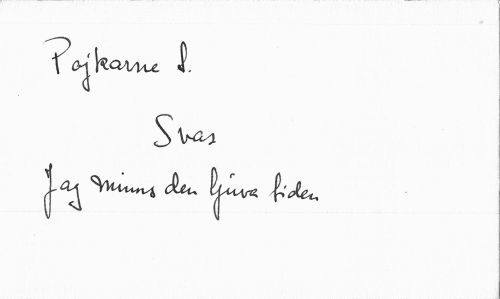 Pojkarne S.
Svar
Jag minns den ljuva tiden